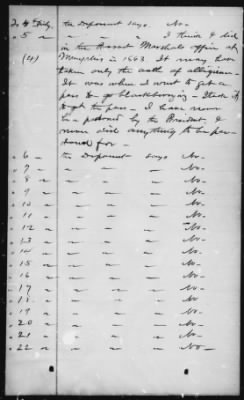 To 4th Intg. the Deponent says. No-
" 5 " " " " I think I did
(4) in the Provost Marshals office at
Memphis in 1863 It may have
taken only the oath of allegiance-
It was when I went to get a
pass to go - I took it
to get the pass - I have never
been pardoned by the President, I
never did anything to be par
doned for -
" 6 - the Deponent says No-
" 7 " " " No-
" 8 " " " " No-
" 9 " " " " No-
" 10 " " " " No-
" 11 " " " " No-
" 12 " " " " No-
" 13 " " " " No-
" 14 " " " " No-
" 15 " " " " No-
" 16 " " " " No-
" 17 " " " " No-
" 18 " " " " No-
" 19 " " " " No-
" 20 " " " " No-
" 21 " " " " No-
" 22 " " " " No-